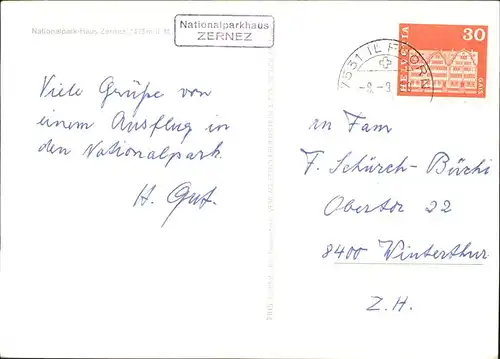 Nationalpark-Haus Zernez, 1473 m ü. M.
Nationalparkhaus
ZERNEZ
Viele Grüße von
einem Ausflug in
den Nationalpark.
H. Gut.
7531 IL FUORN
HELVETIA
30
GAIS
an Fam
F. Schürch-Büchi
Obertor 22
8400 Winterthur
Z.H.